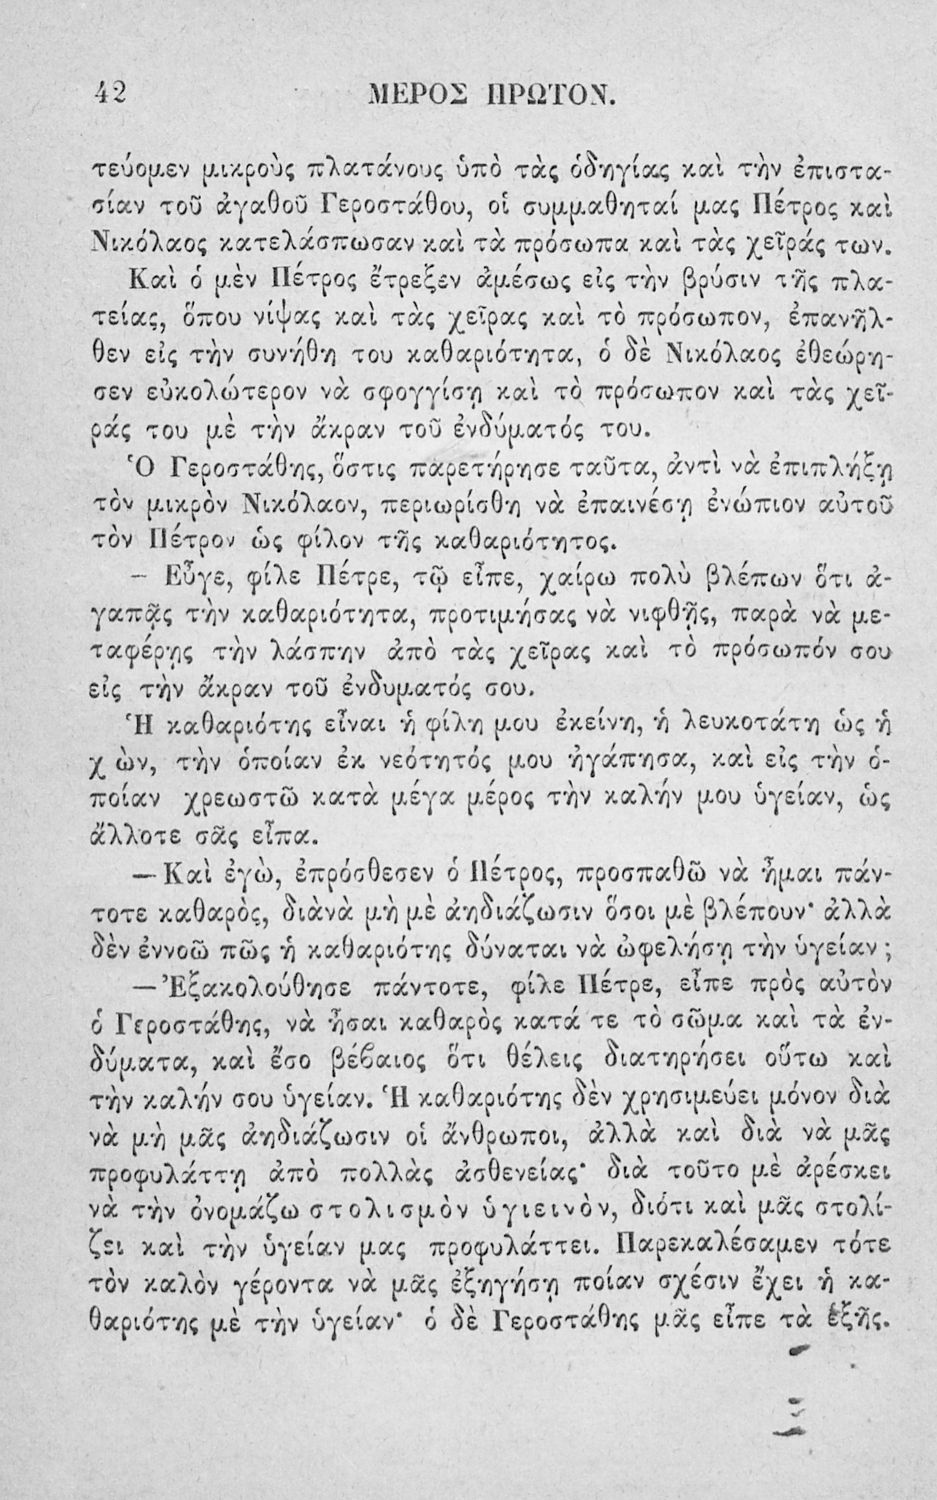 42 ΜΕΡΟΣ ΠΡΩΤΟΝ.
τεύομεν μικροὺς πλατάνους ὑπὸ τὰς ὁδηγίας καὶ τὴν ἐπιστα-
σίαν τοῦ ἀγαθοῦ Γεροστάθου, οἱ συμμαθηταί μας Πέτρος καὶ
Νικόλαος κατελάσπωσαν καὶ τὰ πρόσωπα καὶ τὰς χεῖράς των.
Καὶ ὁ μὲν Πέτρος ἔτρεξεν ἀμέσως εἰς τὴν βρύσιν τῆς πλα-
τείας, ὅπου νίψας καὶ τὰς χεῖρας καὶ τὸ πρόσωπον, ἐπανῆλ-
θεν εἰς τὴν συνήθη του καθαριότητα, ὁ δὲ Νικόλαος ἐθεώρη-
σεν εὐκολώτερον νὰ σφογγίσῃ καὶ τὸ πρόσωπον καὶ τὰς χεῖ-
ράς του μὲ τὴν ἄκραν τοῦ ἐνδύματός του.
Ὁ Γεροστάθης, ὅστις παρετήρησε ταῦτα, ἀντὶ νὰ ἐπιπλήξῃ
τὸν μικρὸν Νικόλαον, περιωρίσθη νὰ ἐπαινέσῃ ἐνώπιον αὐτοῦ
τὸν Πέτρον ὡς φίλον τῆς καθαριότητος.
— Εὖγε, φίλε Πέτρε, τῷ εἶπε, χαίρω πολὺ βλέπων ὅτι ἀ-
γαπᾷς τὴν καθαριότητα, προτιμήσας νὰ νιφθῇς, παρὰ νὰ με-
ταφέρῃς τὴν λάσπην ἀπὸ τὰς χεῖρας καὶ τὸ πρόσωπόν σου
εἰς τὴν ἄκραν τοῦ ἐνδυματός σου.
Ἡ καθαριότης εἶναι ἡ φίλη μου ἐκείνη, ἡ λευκοτάτη ὡς ἡ
χ ὼν, τὴν ὁποίαν ἐκ νεότητός μου ἠγάπησα, καὶ εἰς τὴν ὁ-
ποίαν χρεωστῶ κατὰ μέγα μέρος τὴν καλήν μου ὑγείαν, ὡς
ἄλλοτε σᾶς εἶπα.
— Καὶ ἐγὼ, ἐπρόσθεσεν ὁ Πέτρος, προσπαθῶ νὰ ἦμαι πάν-
τοτε καθαρὸς, διὰνὰ μὴ μὲ ἀηδιάζωσιν ὅσοι μὲ βλέπουν· ἀλλὰ
δὲν ἐννοῶ πῶς ἡ καθαριότης δύναται νὰ ὠφελήσῃ τὴν ὑγείαν ;
— Ἐξακολούθησε πάντοτε, φίλε Πέτρε, εἶπε πρὸς αὐτὸν
ὁ Γεροστάθης, νὰ ἦσαι καθαρὸς κατά τε τὸ σῶμα καὶ τὰ ἐν-
δύματα, καὶ ἔσο βέβαιος ὅτι θέλεις διατηρήσει οὕτω καὶ
τὴν καλήν σου ὑγείαν. Ἡ καθαριότης δὲν χρησιμεύει μόνον διὰ
νὰ μὴ μᾶς ἀηδιάζωσιν οἱ ἄνθρωποι, ἀλλὰ καὶ διὰ νὰ μᾶς
προφυλάττῃ ἀπὸ πολλὰς ἀσθενείας· διὰ τοῦτο μὲ ἀρέσκει
νὰ τὴν ὀνομάζω στολισμὸν ὑγιεινὸν, διότι καὶ μᾶς στολί-
ζει καὶ τὴν ὑγείαν μας προφυλάττει. Παρεκαλέσαμεν τότε
τὸν καλὸν γέροντα νὰ μᾶς ἐξηγήσῃ ποίαν σχέσιν ἔχει ἡ κα-
θαριότης μὲ τὴν ὑγείαν· ὁ δὲ Γεροστάθης μᾶς εἶπε τὰ ἑξῆς.